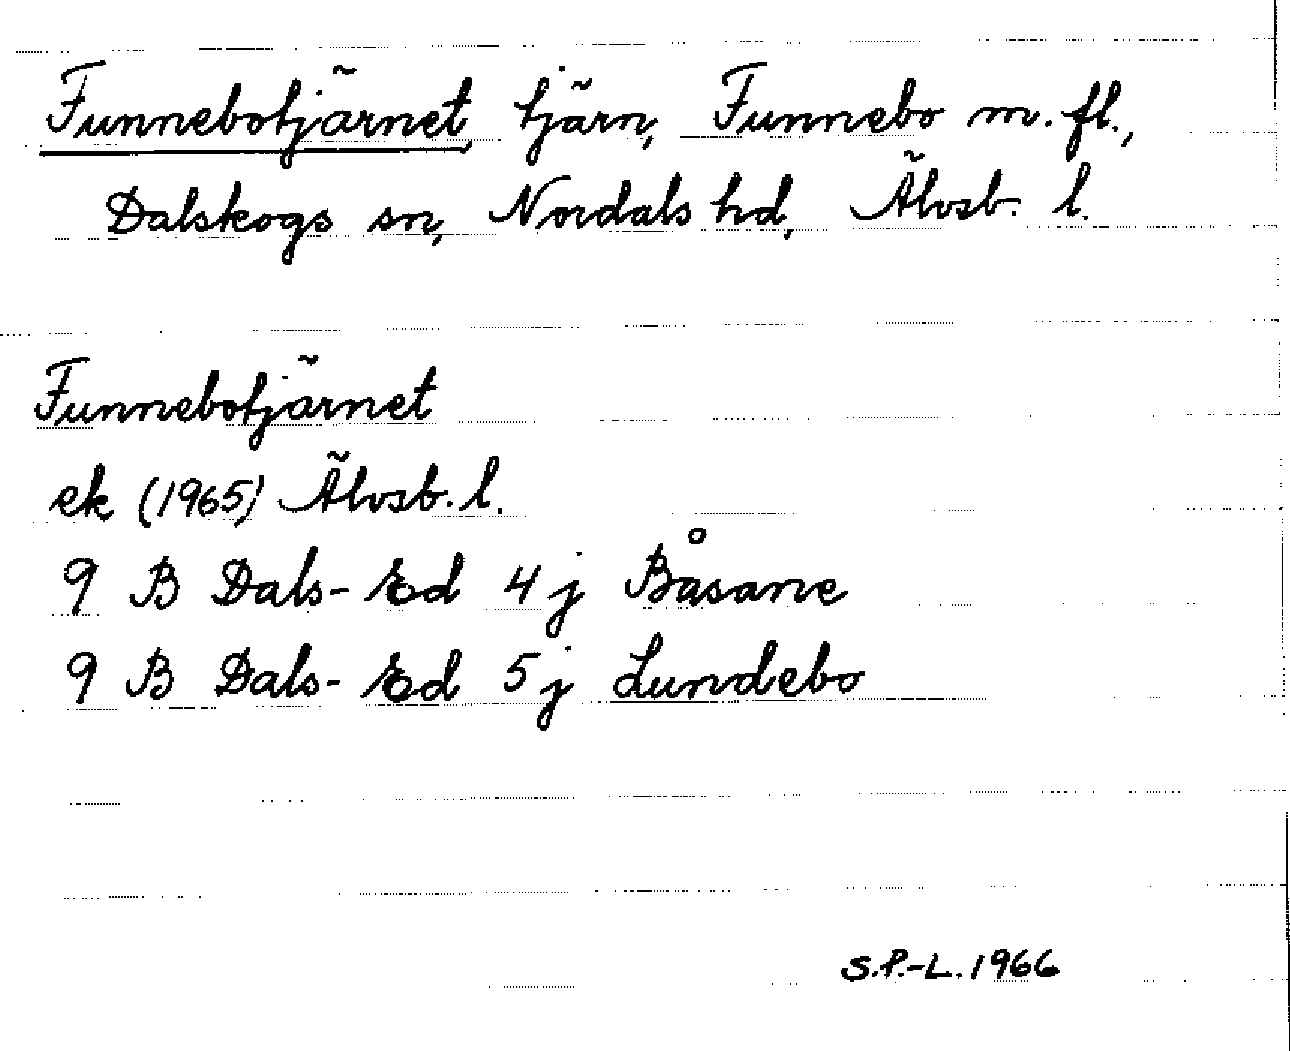 Funnebotjärnet, tjärn, Funnebo m.fl.,
Dalskogs sn, Nordals hd, Älvsb. l.
Funnebotjärnet
ek (1965) Älvsb. l.
9 B Dals-Ed 4j Båsane
9 B Dals-Ed 5j Lundebo
S.P.-L. 1966